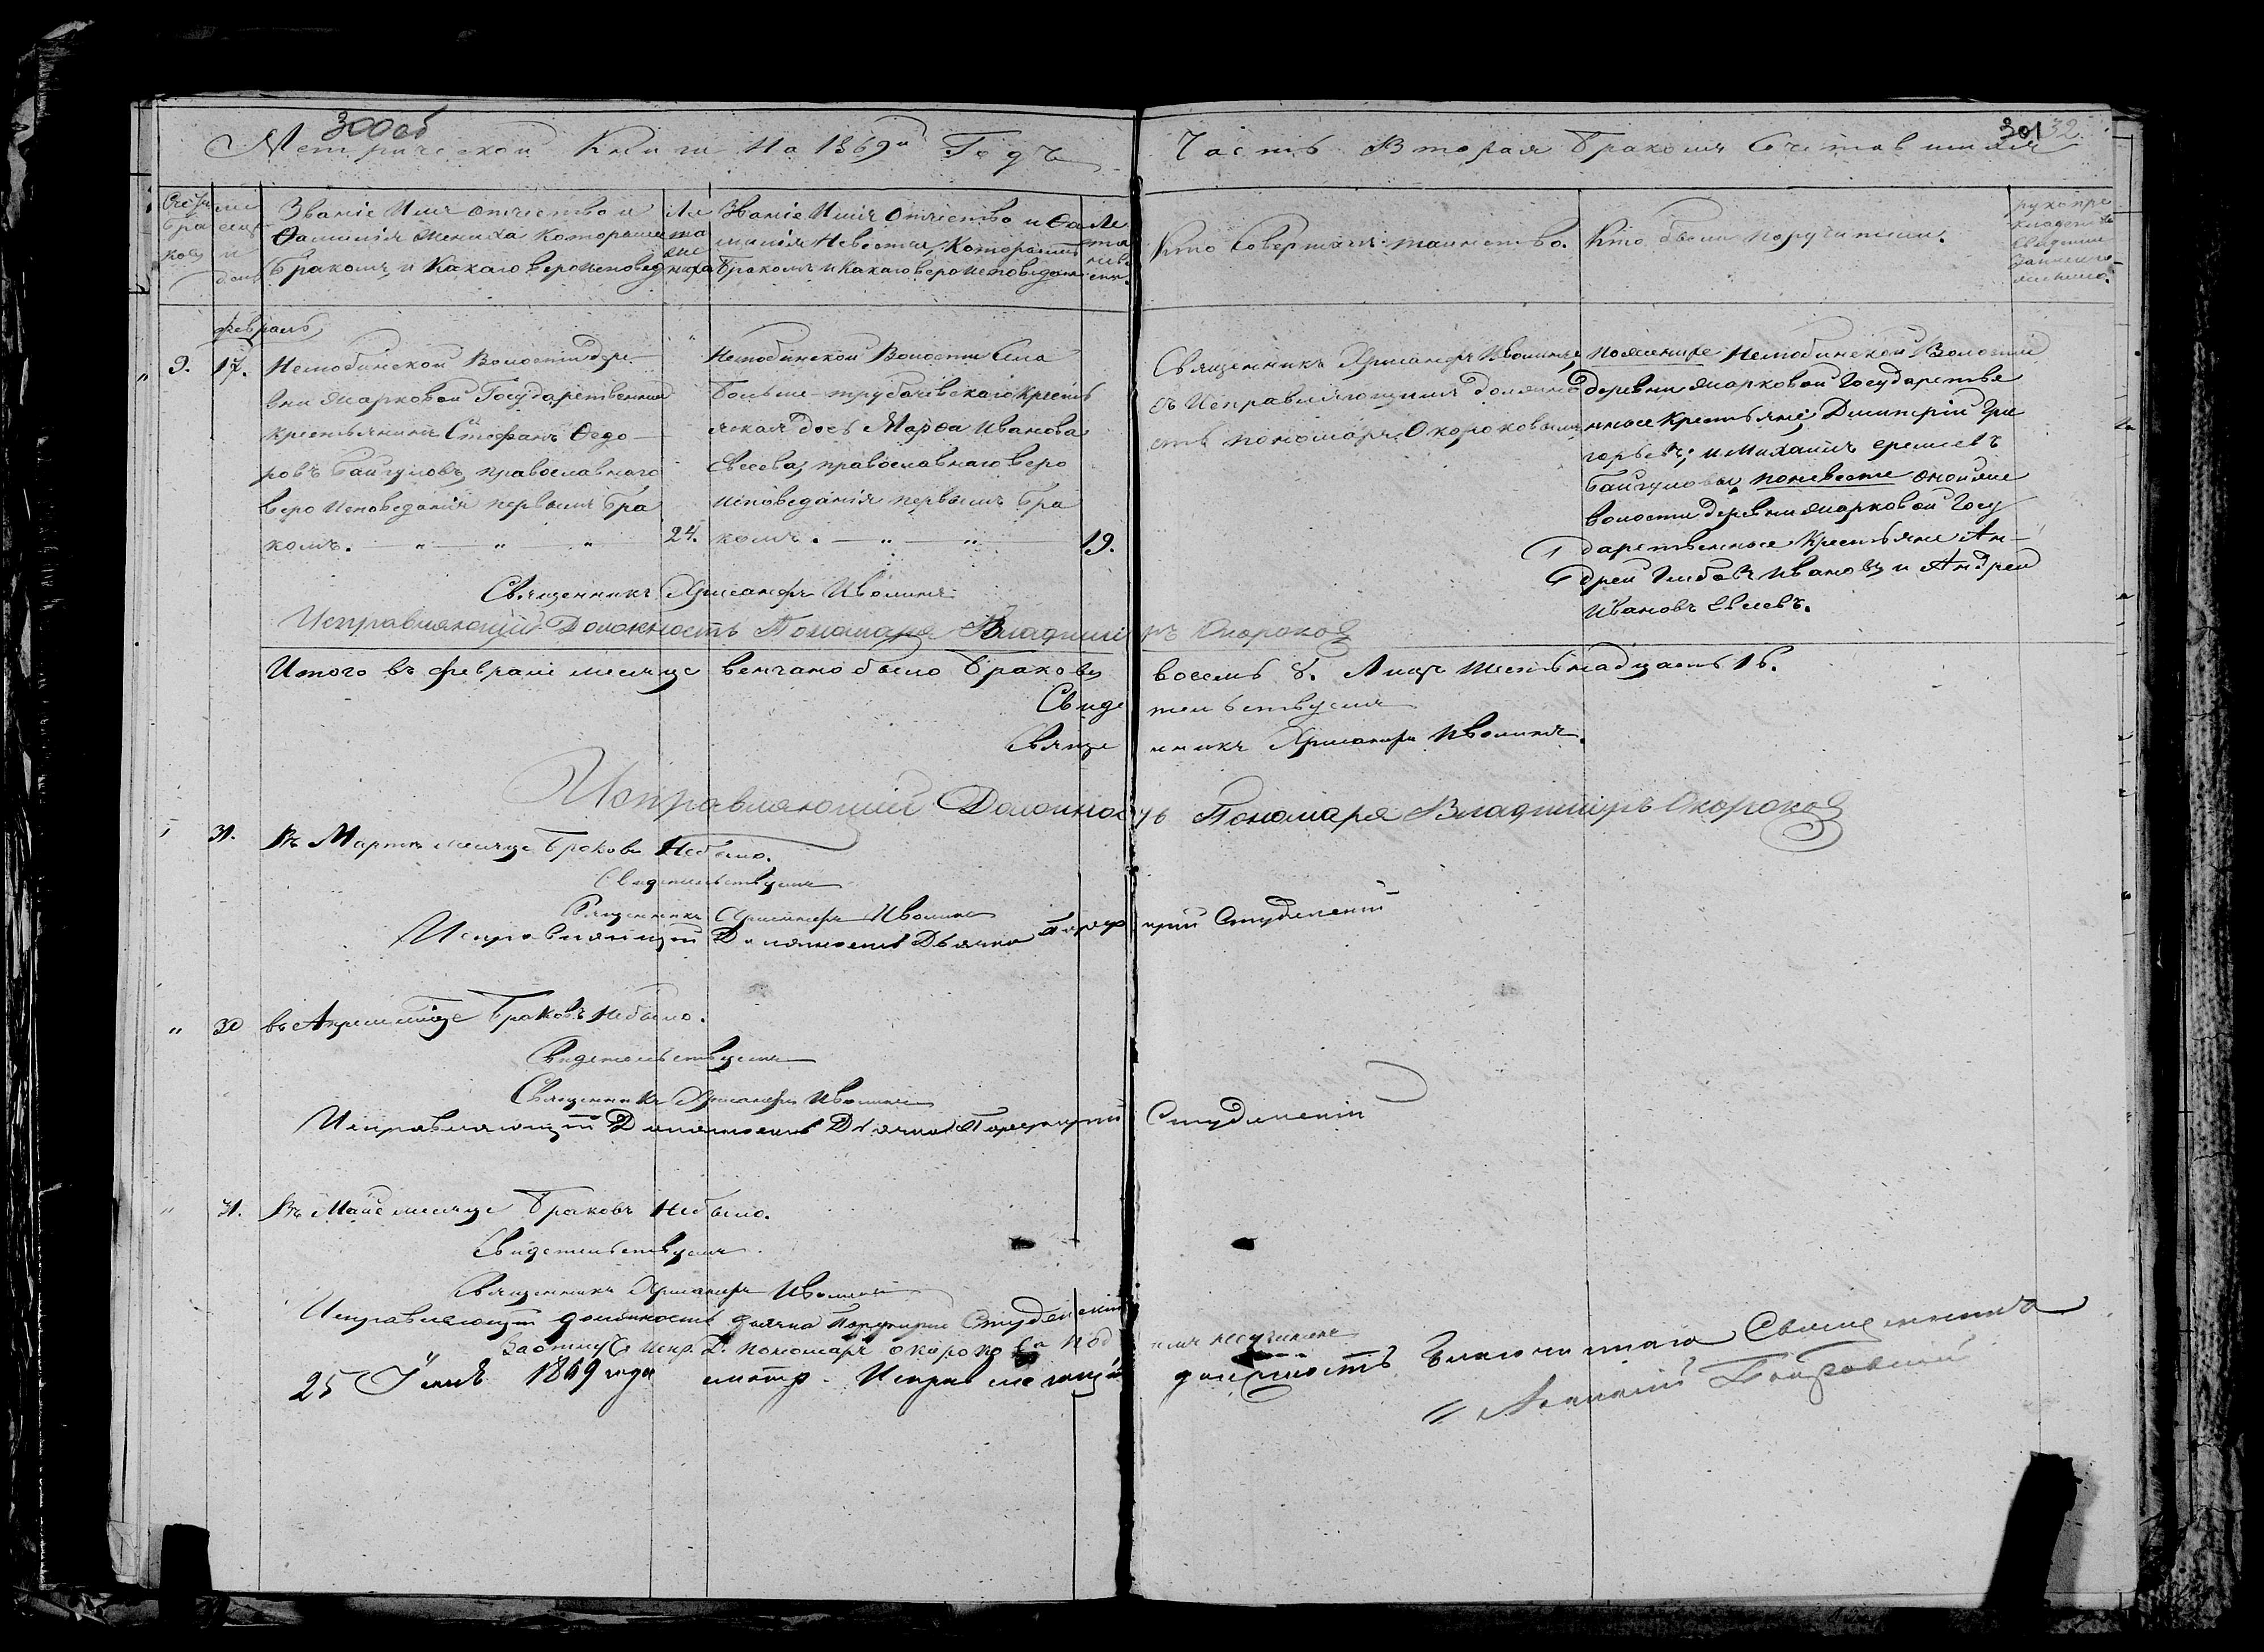 300об
Метрической Книги На 1869й Годъ
Часть Вторая Бракомъ Сочетавшихся
301 32
Звание Имя отчество и
Фамилия Жениха Которымъ
Бракомъ и Какаго вероисповед
Лета жениха
Звание Имя Отчество и Фа
милия Невесты, Которымъ
Бракомъ и Какаго вероисповедан
Лета невесты.
Кто Совершалъ таинство.
Кто были поручители.
февраль
9. 17.
Волости дере
вни Марковой Государственный
крестьянинъ Стефанъ Ѳедо
ровъ Байгуловъ, православнаго
веро исповедания первымъ бра
комъ. 24.
Волости Села
Больше-трубачевскаго Кресть
янская дочь Марѳа Иванова
Евсева, православнаго веро
исповедания первымъ бра
комъ. 19.
Священникъ Хрисанфъ Иволинъ
съ Исправляющимъ должно
сть пономаря Окороковымъ
по женихе Волости
деревни Марковой Государстве
нные Крестьяне, Дмитрий Гри
горьевъ; и Михаилъ
Байгуловы, по невесте
волости деревни Марковой Госу
дарственные Крестьяне Ан
дрей Глебовъ Ивановъ и Андрей
Ивановъ Евсевъ.
Священникъ Хрисанфъ Иволинъ
Исправляющий Должность Пономаря Владимиръ Окороковъ
Итого въ феврале месяце венчано было браковъ восемь 8. Лицъ шестьнадцать 16.
Свидетельствуемъ
Священникъ Хрисанфъ Иволинъ.
Исправляющий Должность Пономаря Владимиръ Окороковъ
31. Въ Марте месяце браковъ Небыло.
Свидетельствуемъ
Священникъ Хрисанфъ Иволинъ
Исправляющий Должность Дьячка Порфирий Студенский
" 30 въ Апреле м-це браковъ небыло.
Свидетельствуемъ
Священникъ Хрисанфъ Иволинъ
Исправляющий Должность Дьячка Порфирий Студенский
" 31. Въ Мае месяце браковъ Небыло.
Свидетельствуемъ
Священникъ Хрисанфъ Иволинъ
Исправляющий должность дьячка Порфирий Студенский
25 1869 года Исправляющий должность Благочиннаго Священникъ